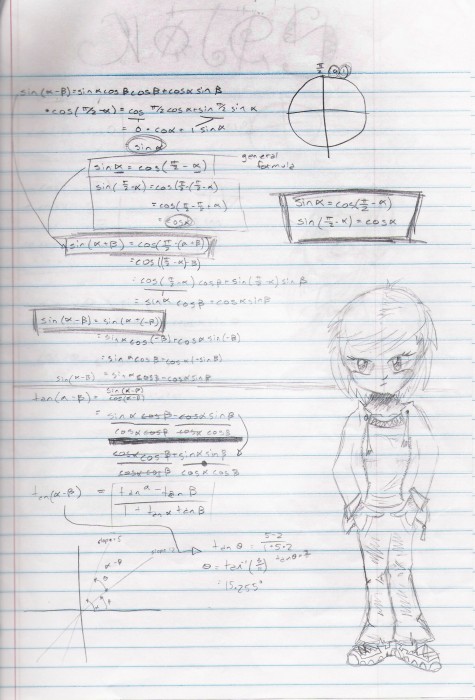 Notes
π/2 (0,1)
sin(α-β)=sinαcosβcosβ+cosαsinβ
•cos(π/2-α)=cos π/2 cosα+sin π/2 sin α
= 0 + cosα + 1 sinα
sinα
general formula
sinα = cos(π/2 - α)
sin(π/2-α)=cos(π/2-(π/2-α)
=cos(π/2-π/2+α)
=cosα
sinα=cos(π/2-α)
sin(π/2-α)=cosα
sin(α+β)=cos(π/2-(α+β))
=cos((π/2-α)-β)
=cos(π/2-α)cosβ+sin(π/2-α)sinβ
=sinα cosβ+cosαsinβ
sin(α-β)=sin(α+(-β)
=sinαcos(-β)+cosαsin(-β)
=sinαcosβ+cosα(-sinβ)
sin(α-β)=sinαcosβ-cosαsinβ
tan(α-β)=sin(α-β)/cos(α-β)
=sinαcosβ-cosαsinβ
cosαcosβ cosαcosβ
cosαcosβ+sinαsinβ
cosαcosβ cosαcosβ
tan(α-β) = tanα-tanβ
1+tanαtanβ
slope=5
α-β
θ
tanθ = 5-2
1+5·2
θ=tan⁻¹(
=15.255°